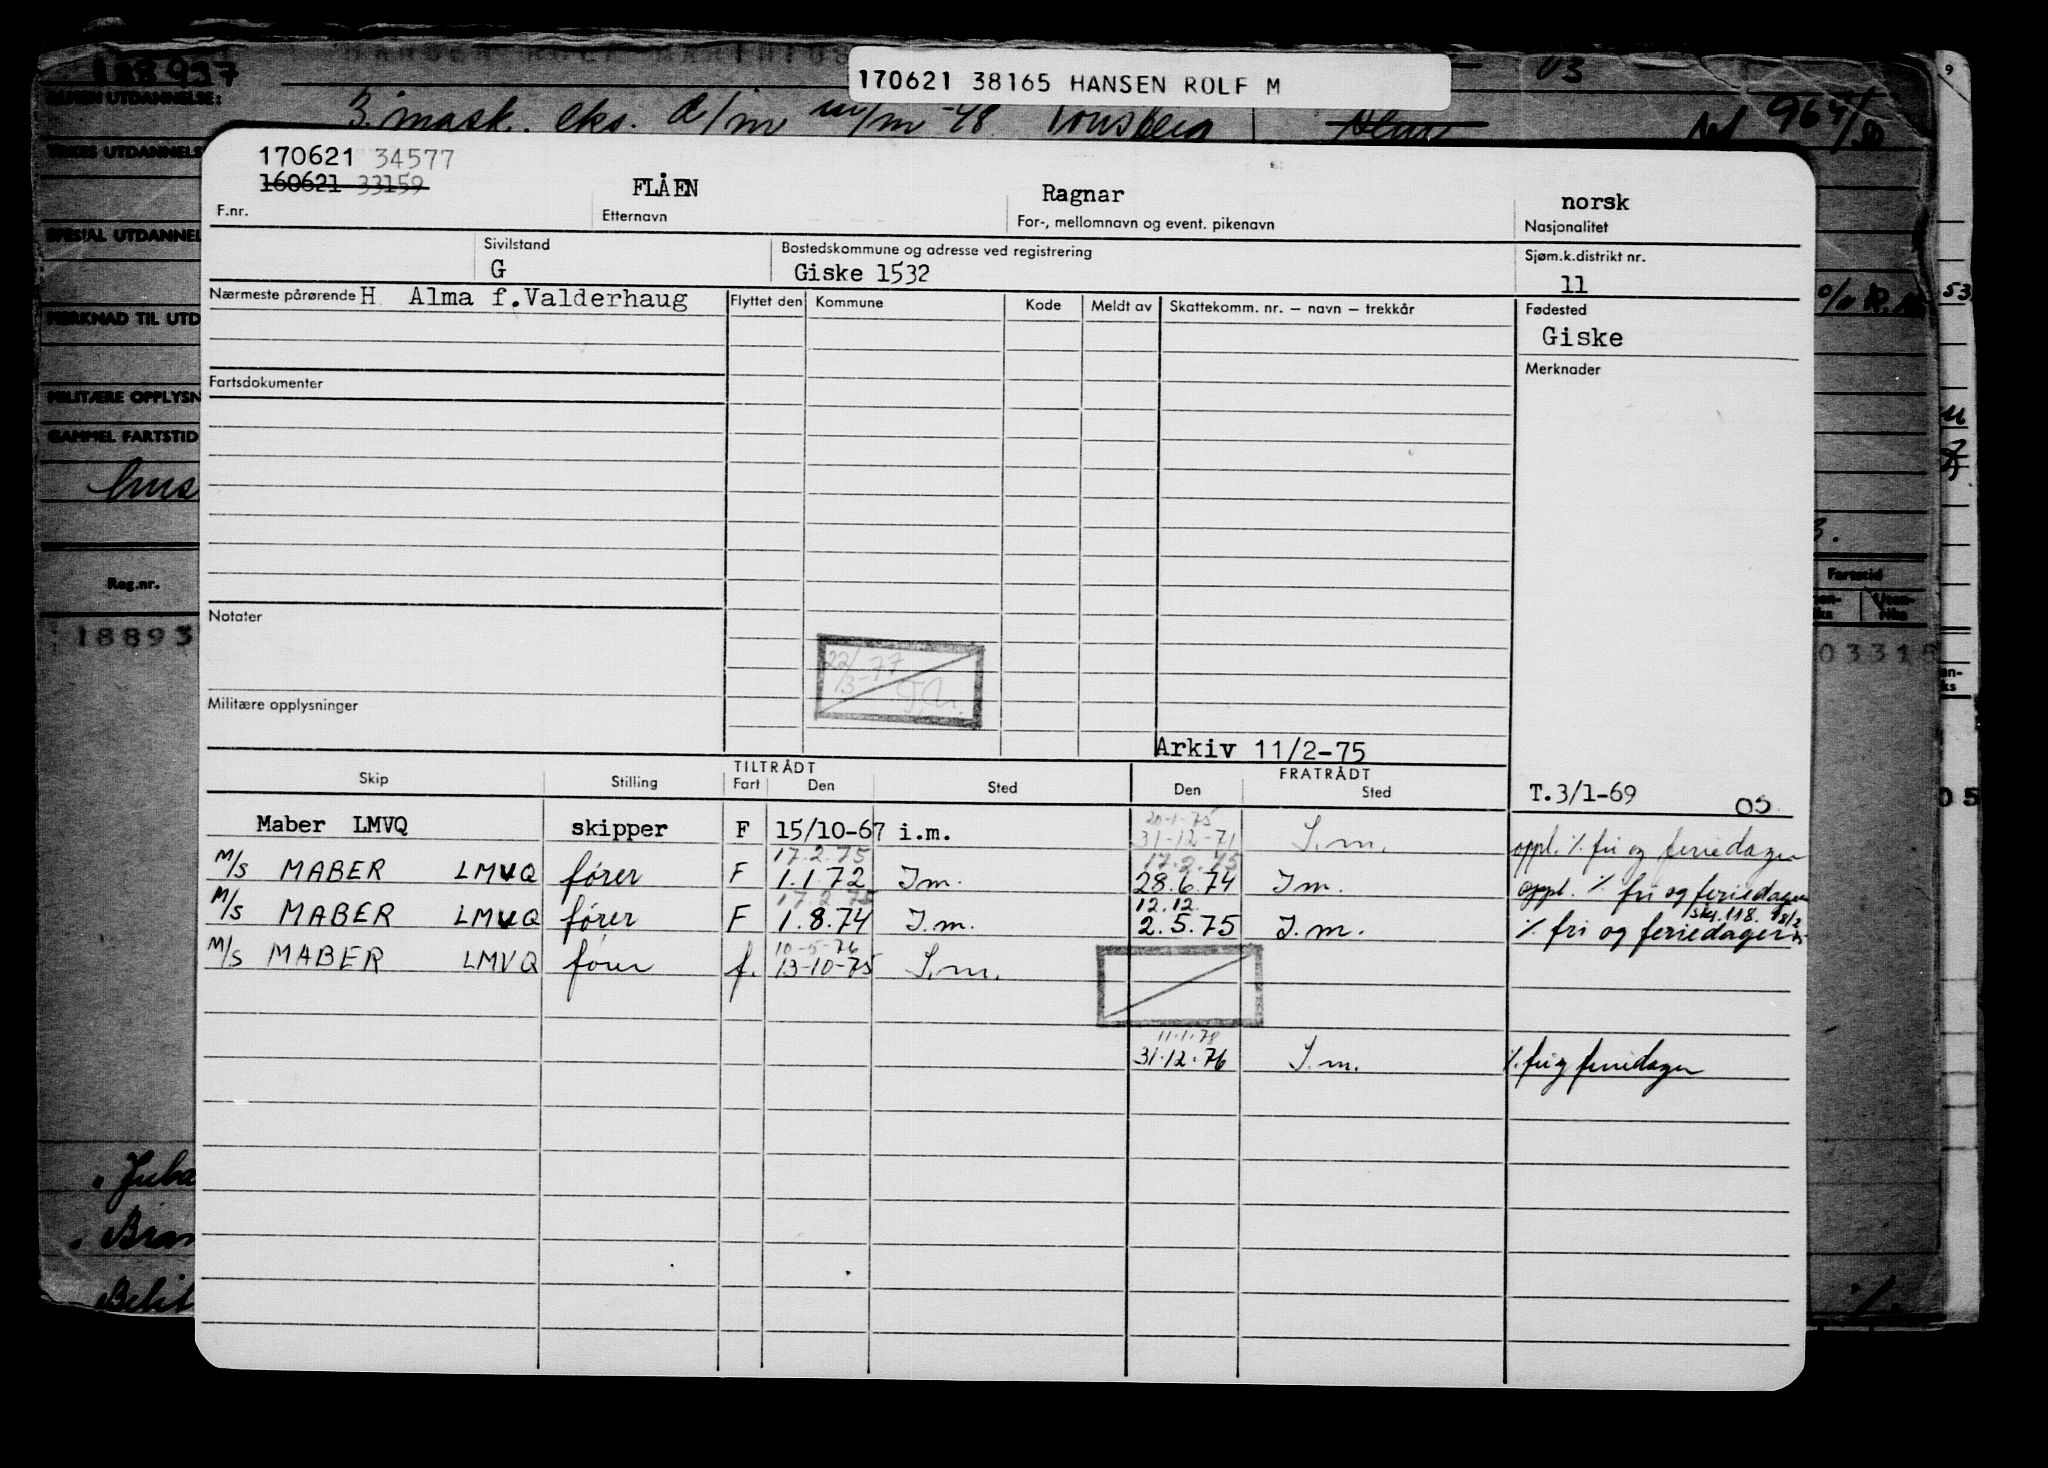 188937
170621 38165 HANSEN ROLF M
3. mask. eks. Tønsberg
964/50
170621 34577
160621 33159
FLÅEN
Ragnar
norsk
F.nr.
Etternavn
For-, mellomnavn og event. pikenavn
Nasjonalitet
Sivilstand
Bostedskommune og adresse ved registrering
Sjøm.k.distrikt nr.
G
Giske 1532
11
Nærmeste pårørende H Alma f.Valderhaug
Flyttet den
Kommune
Kode
Meldt av
Skattekomm. nr. — navn — trekkår
Fødested
Giske
Fartsdokumenter
Merknader
GAMMEL FARTSTID
Reg.nr.
18893
Fartstid
03315
Notater
22/3-77
Militære opplysninger
Arkiv 11/2-75
TILTRÅDT
FRATRÅDT
Skip
Stilling
Fart
Den
Sted
Den
Sted
T.3/1-69
05
Maber LMVQ skipper F 15/10-67 i.m. 20-1-75 31-12-71 I.m. oppl. % fri og feriedager
M/S MABER LMVQ fører F 17.2.75 1.1.72 I m. 17.2.75 28.6.74 I m. oppl. % fri og feriedager
M/S MABER LMVQ fører F 17.2.75 1.8.74 I.m. 12.12. 2.5.75 I.m. % fri og feriedager skr. 118. 18/2
M/S MABER LMVQ fører f. 10-5-76 13-10-75 I.m.
11.1.78
31.12.76 I.m. %. fri og feriedager